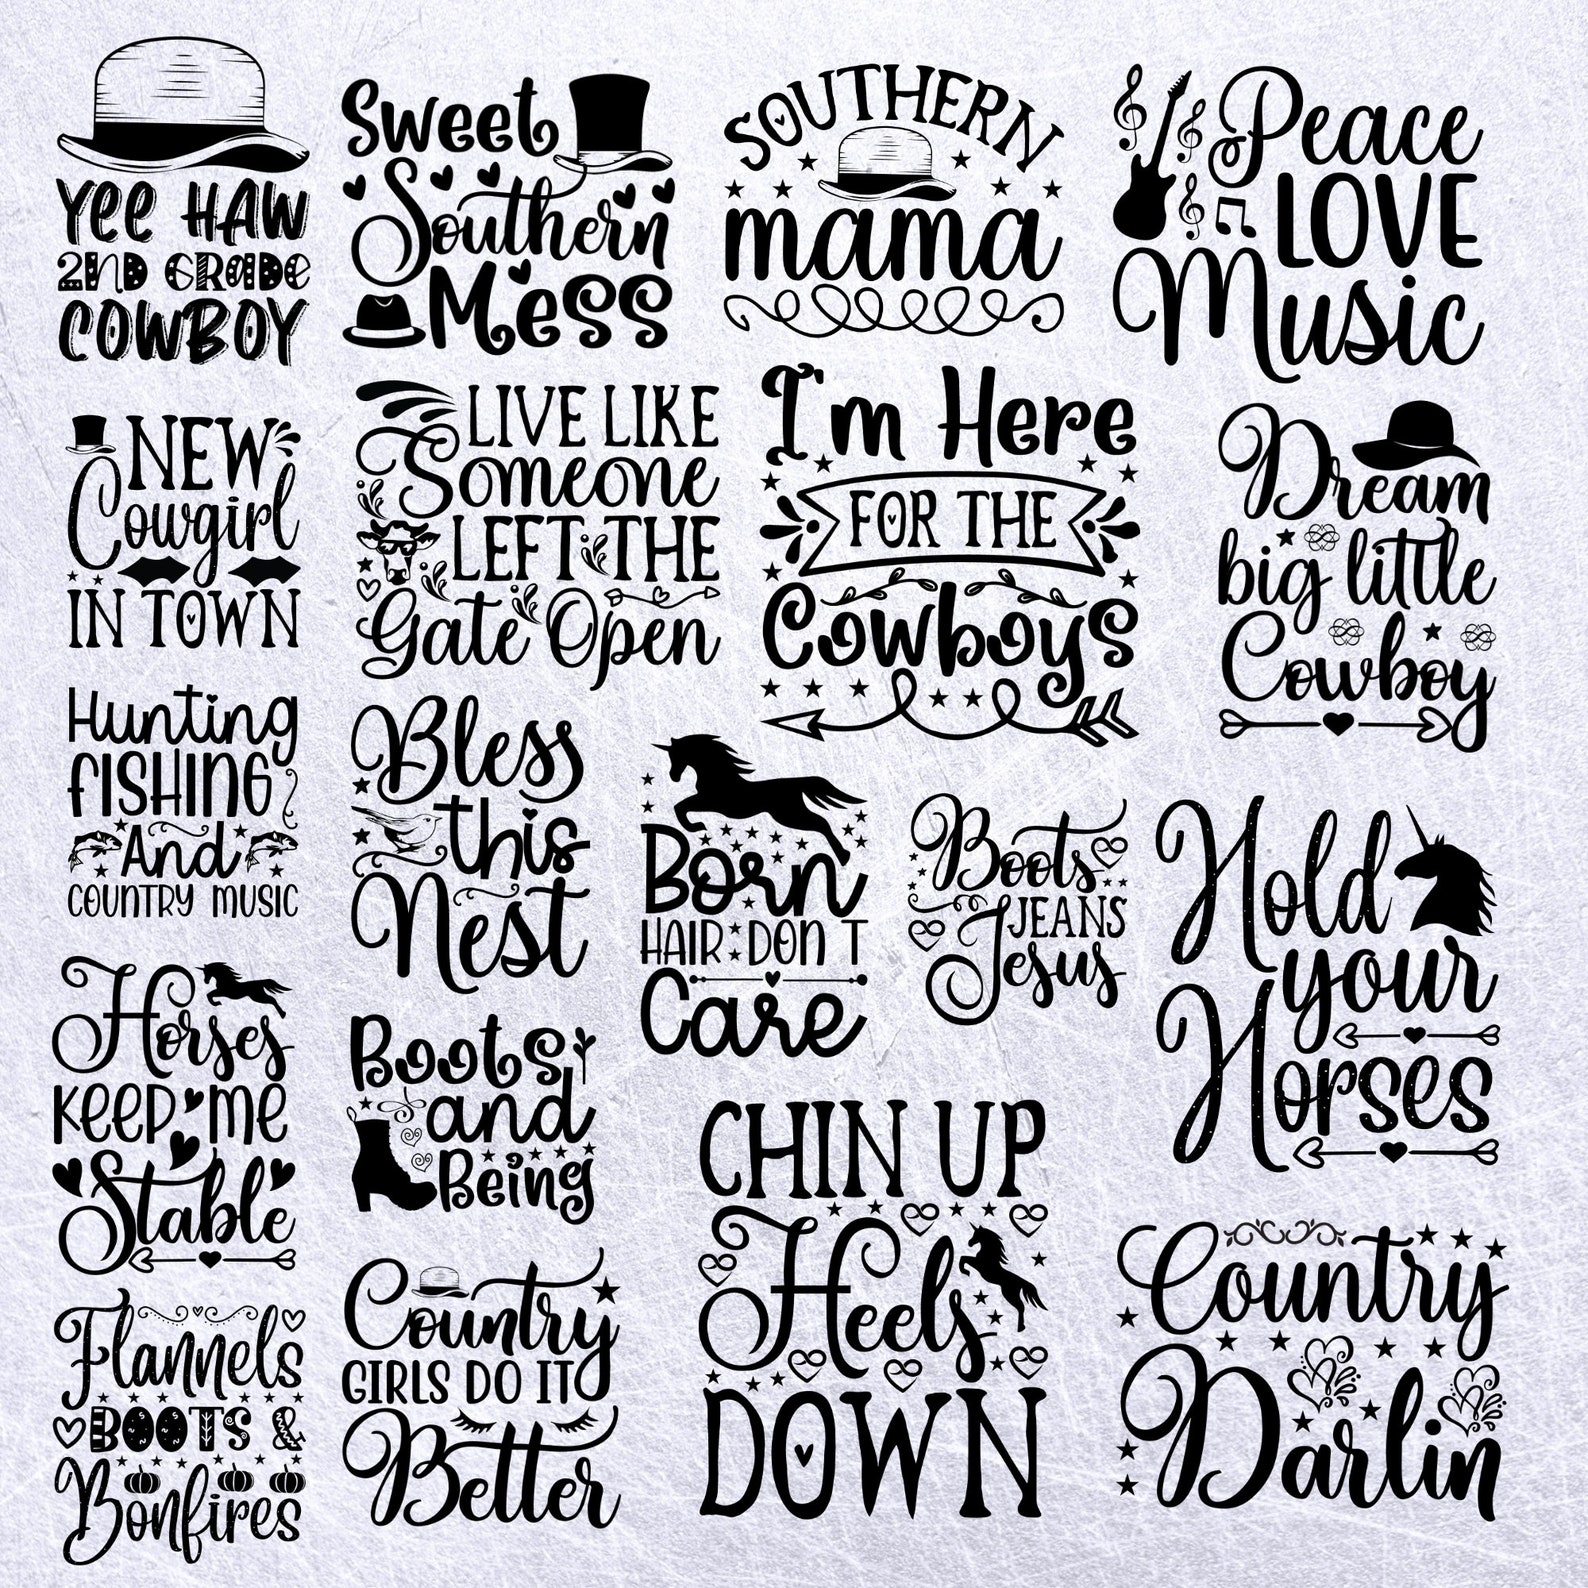 YEE HAW
2ND GRADE
COWBOY
Sweet
Southern
Mess
SOUTHERN
mama
Peace
LOVE
Music
NEW
Cowgirl
IN TOWN
LIVE LIKE
Someone
LEFT THE
Gate Open
I'm Here
FOR THE
Cowboys
Dream
big little
Cowboy
Hunting
FISHING
And
COUNTRY MUSIC
Bless
this
Nest
Born
HAIR DON T
Care
Boots
JEANS
Jesus
Hold
your
Horses
Horses
KEEP ME
Stable
Boots
and
Being
CHIN UP
Heels
DOWN
Country
Darlin
Flannels
BOOTS &
Bonfires
Country
GIRLS DO IT
Better